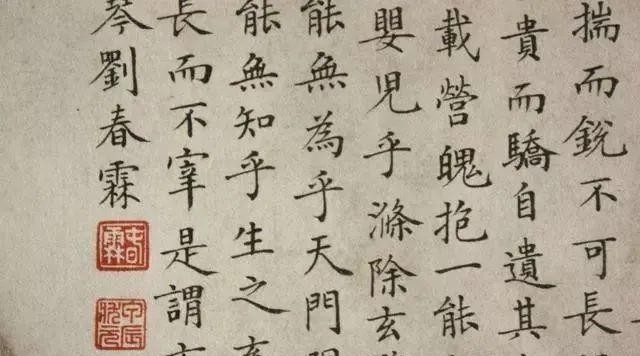 揣而銳不可長
貴而驕自遺其
載營魄抱一能
嬰児乎滌除玄
能無為乎天門
能無知乎生之
長而不宰是謂
琴劉春霖
春霖
甲辰狀元